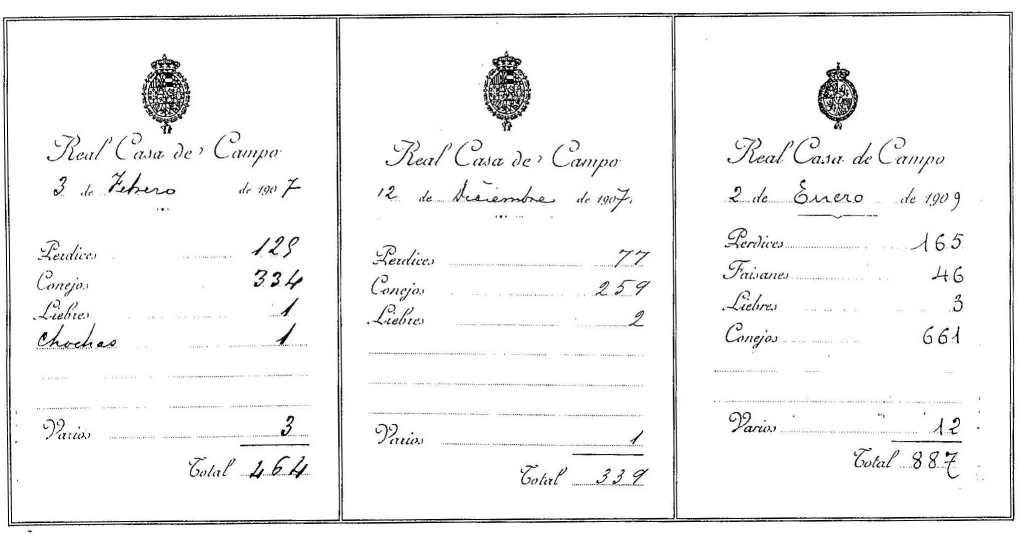 Real Casa de Campo
3 de Febrero de 1907
Perdices 125
Conejos 334
Liebres 1
Chochas 1
Varios 3
Total 464
Real Casa de Campo
12 de Diciembre de 1907
Perdices 77
Conejos 259
Liebres 2
Varios 1
Total 339
Real Casa de Campo
2 de Enero de 1909
Perdices 165
Faisanes 46
Liebres 3
Conejos 661
Varios 12
Total 887